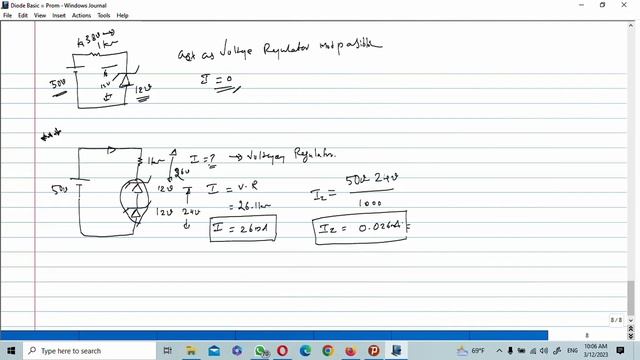 Diode Basic = Prom - Windows Journal
File Edit View Insert Actions Tools Help
38V
1kΩ
act as Voltage Regulator not possible
50V
12V
12V
I = 0
1kΩ
26V
I = ?
→ Voltage Regulator.
50V
12V
12V
24V
I = V·R
= 26.1kΩ
I = 26mA
Iz = 50V 24V
1000
Iz = 0.026A =
8/8
8
Type here to search
69°F
10:06 AM
3/12/2023